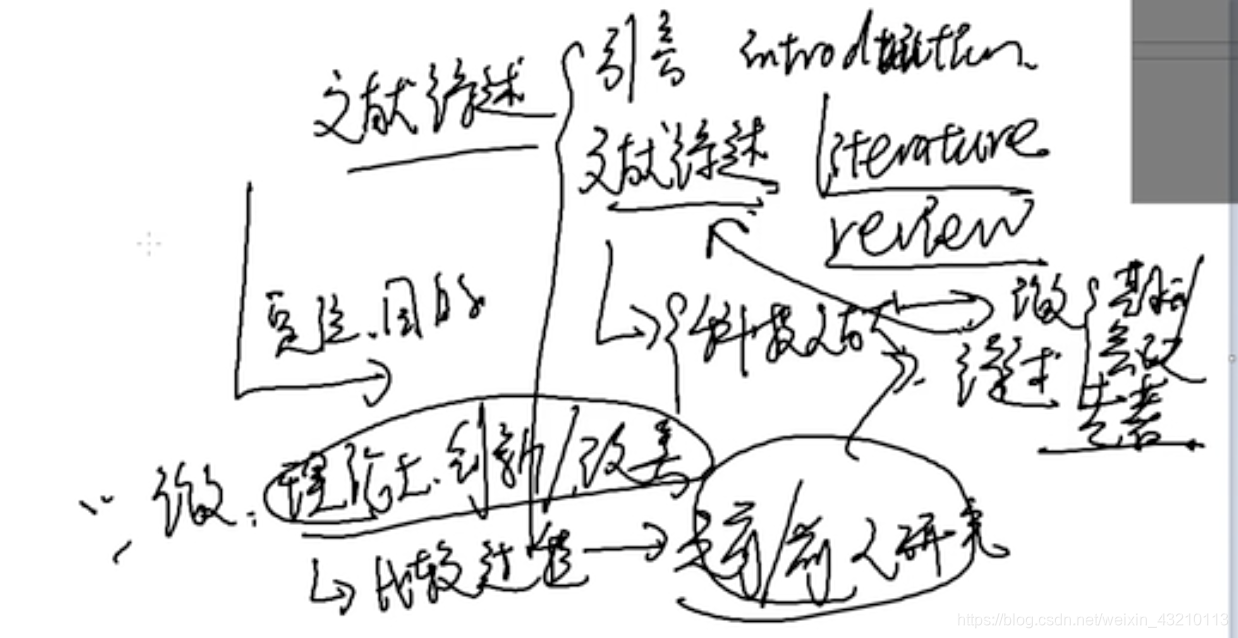 文献综述
引言 introduction
文献综述 literature
review
目的
科技文献
论文 期刊
综述 会议
论文: 理论上.创新/改善
比较过程
之前/前人研究
https://blog.csdn.net/weixin_43210113